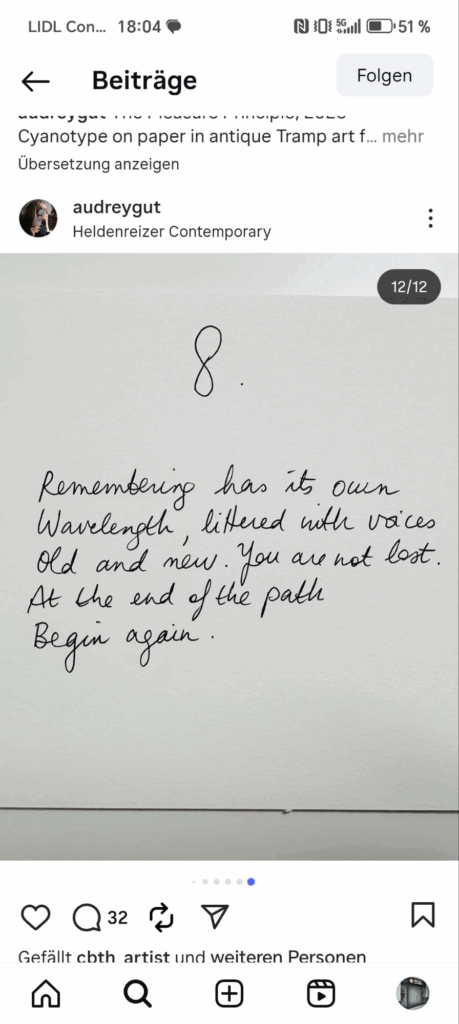 LIDL Con... 18:04 5G 51 %
Beiträge
Folgen
audreygut The Pleasure Principle, 2026
Cyanotype on paper in antique Tramp art f... mehr
Übersetzung anzeigen
audreygut
Heldenreizer Contemporary
12/12
8.
Remembering has its own
Wavelength, littered with voices
Old and new. You are not lost.
At the end of the path
Begin again.
32
Gefällt cbth_artist und weiteren Personen